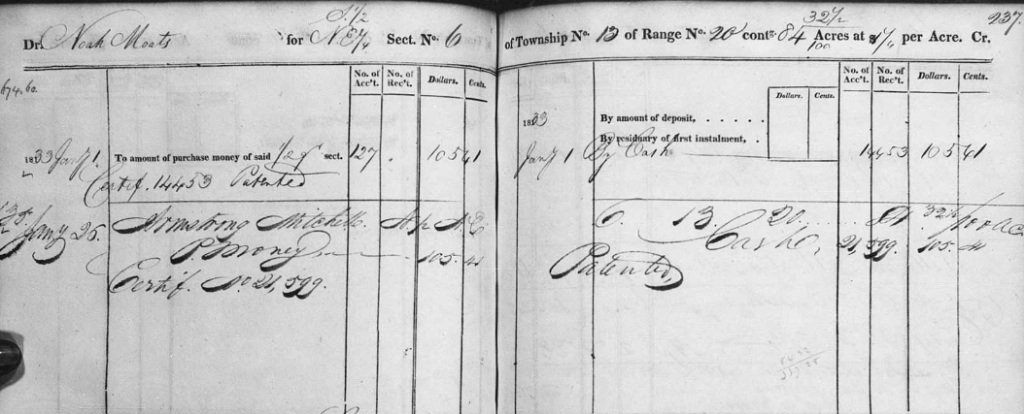 S. 1/2
Dr. Noah Moats for N E 1/4 Sect. No. 6
No. of Acc't. No. of Rec't. Dollars. Cents.
1833 Jany 1. To amount of purchase money of said 1/2 qr sect. 127 105 41
Certif. 14453 Patented
Jany 25. Armstrong Mitchell.
P. Money 105 41
Certif. No 21,599.
237.
32 1/2
of Township No. 13 of Range No. 20 cont. 84 100 Acres at 1 1/4 per Acre. Cr.
Dollars. Cents. No. of Acc't. No. of Rec't. Dollars. Cents.
1833 By amount of deposit,
By residuary of first instalment,
Jany 1 By Cash 14453 105 41
6. 13. 20. 84. 32 1/2/100 ac
Cash, 21,599. 105. 41
Patented,